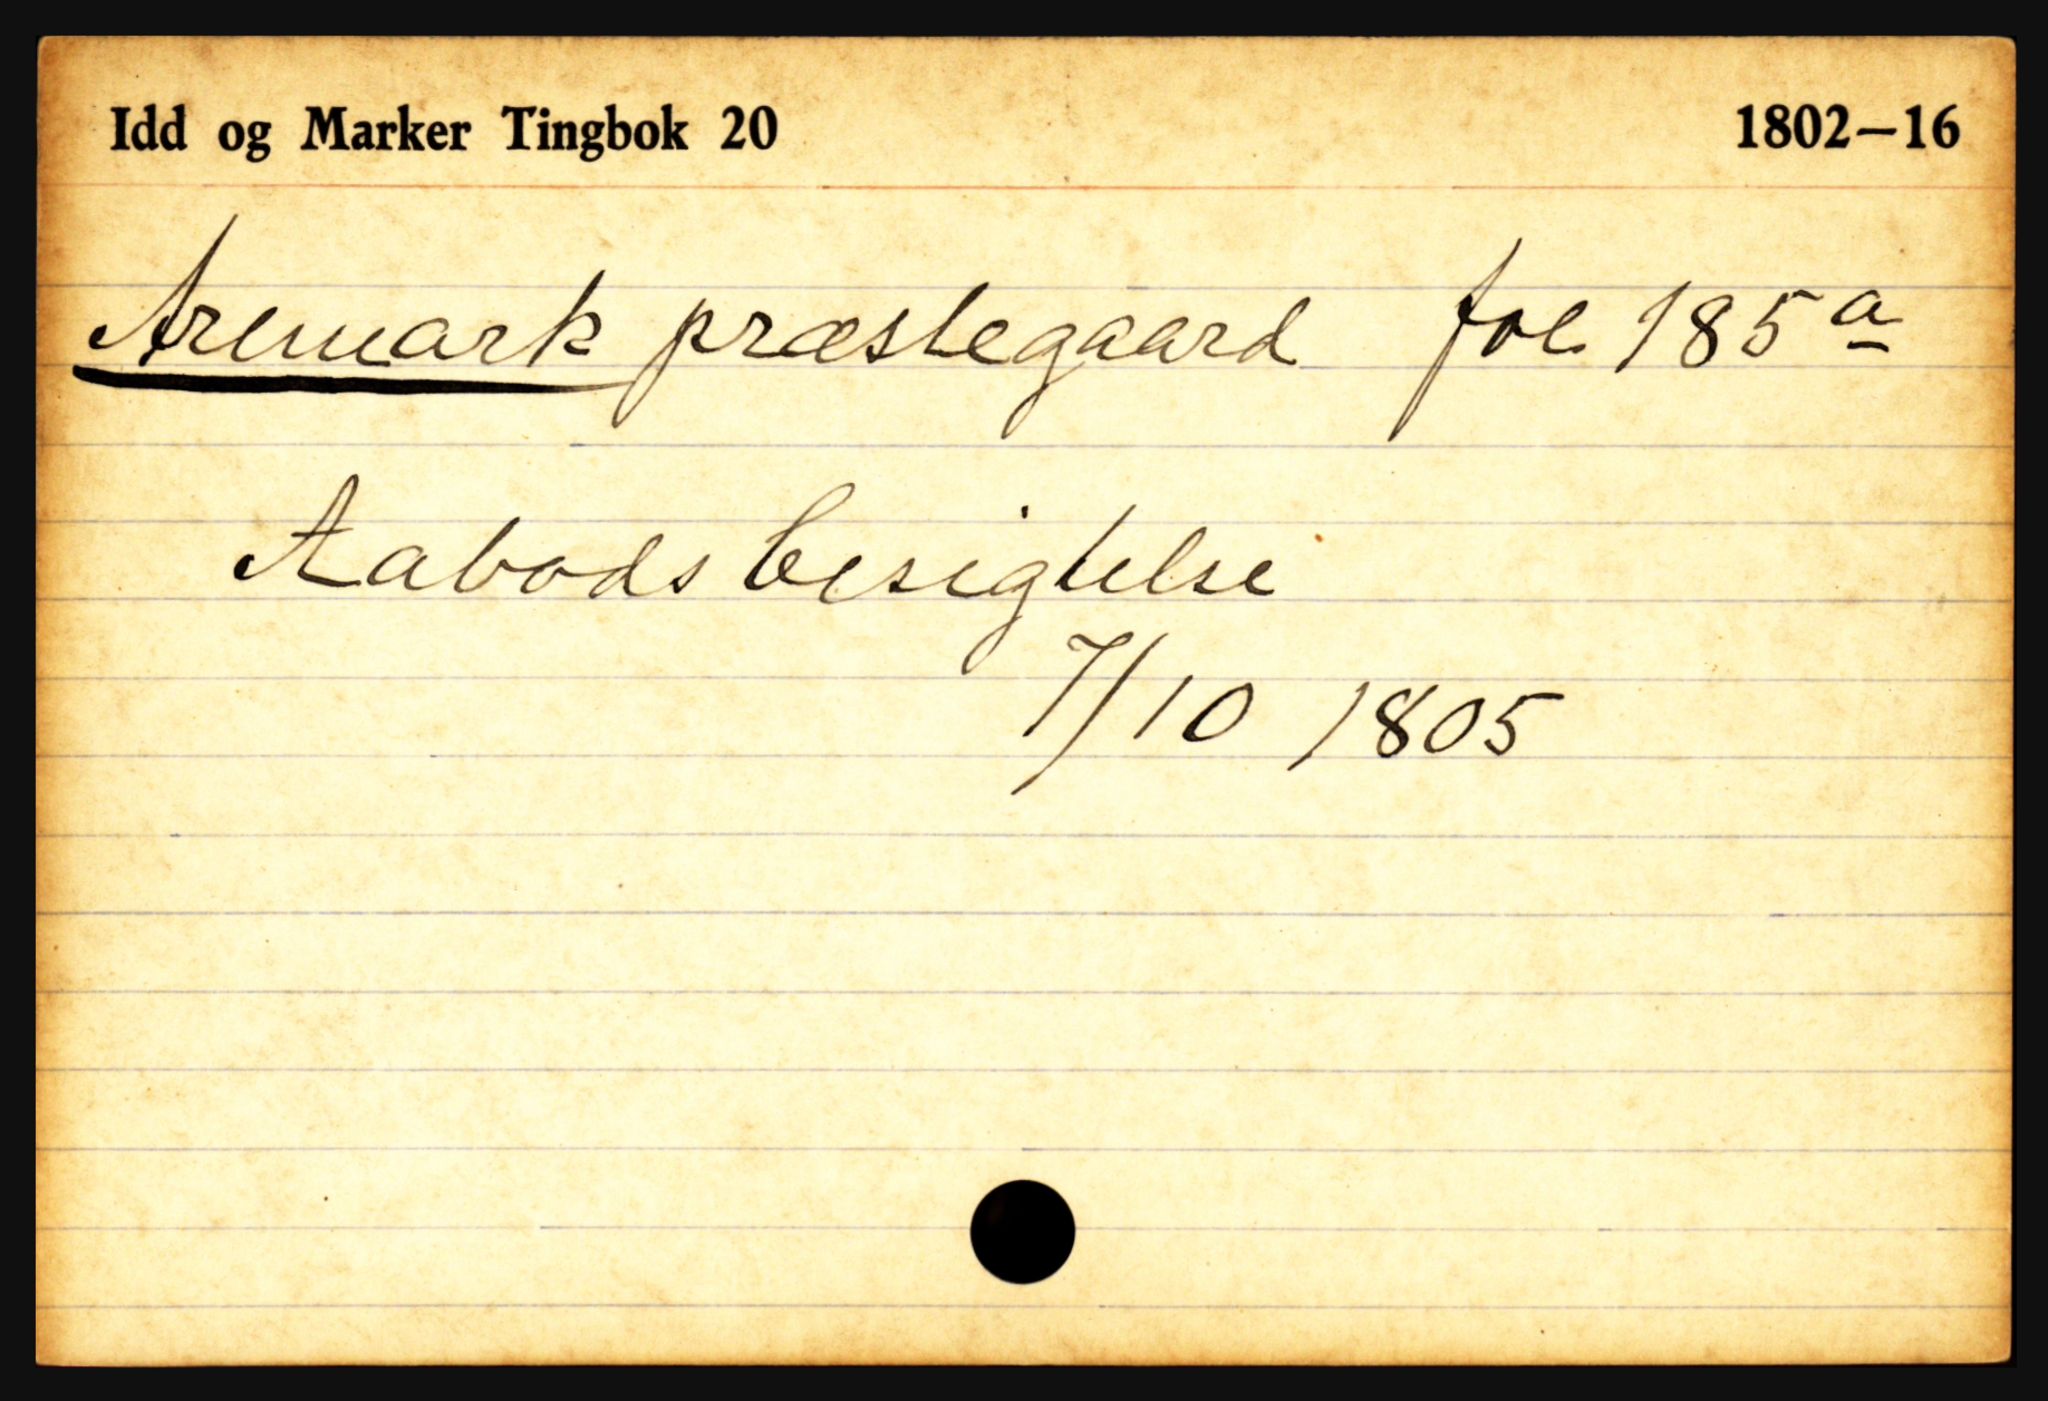 Idd og Marker Tingbok 20 1802—16
Aremark præstegaard fol. 185 a
Aabodsbesigtelse
7/10 1805